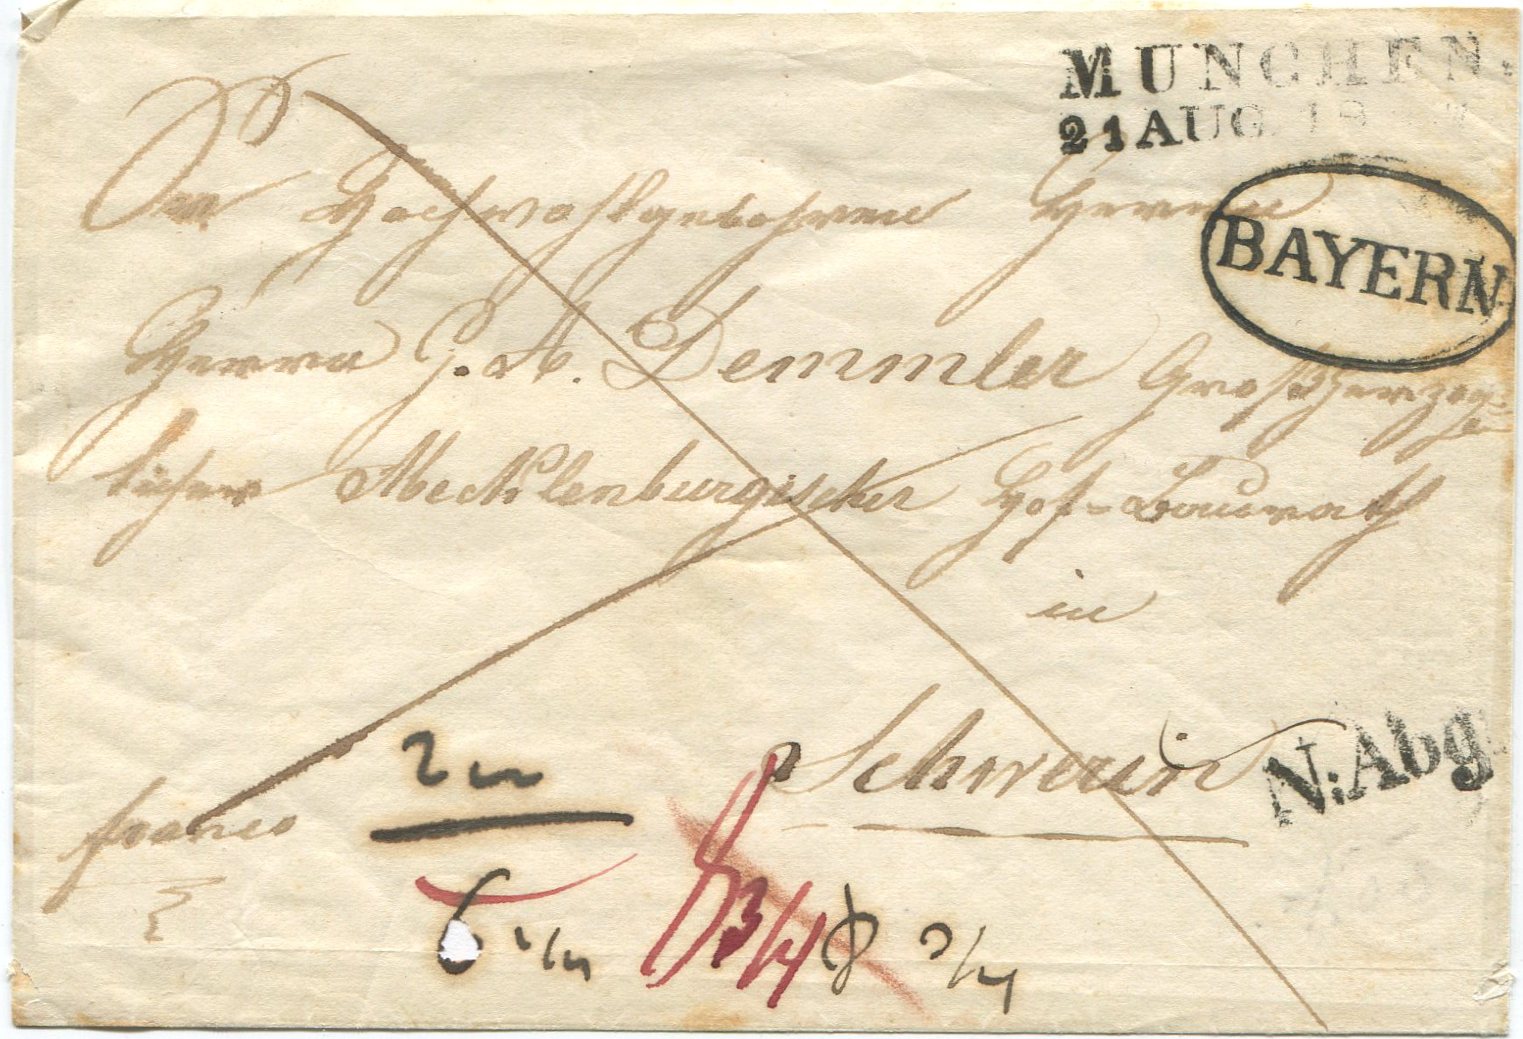 MUNCHEN.
21 AUG. 18
BAYERN.
An Hochwohlgebohren Herrn
Herrn G. A. Demmler Großherzog=
licher Mecklenburgischer Hof-Baurath
in
Schwerin
N. Abg.
franco
6
8 3/4 8 3/4